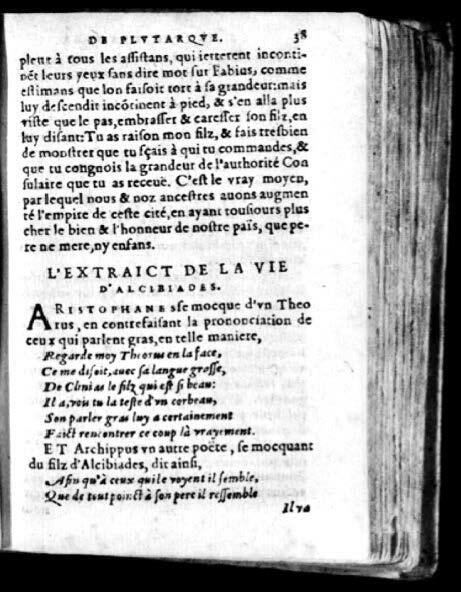 DE PLVTARQVE. 38
pleut à tous les assistans, qui ietterent inconti-
nēt leurs yeux sans dire mot sur Fabius, comme
estimans que lon faisoit tort à sa grandeur: mais
luy descendit incōtinent à pied, & s'en alla plus
viste que le pas, embrasser & caresser son filz, en
luy disant: Tu as raison mon filz, & fais tresbien
de monstrer que tu sçais à qui tu commandes, &
que tu congnois la grandeur de l'authorité Con
sulaire que tu as receuë. C'est le vray moyen,
par lequel nous & noz ancestres auons augmen
té l'empire de ceste cité, en ayant tousiours plus
cher le bien & l'honneur de nostre païs, que pe-
re ne mere, ny enfans.
L'EXTRAICT DE LA VIE
D'ALCIBIADES.
ARISTOPHANES se mocque d'vn Theo
rus, en contrefaisant la prononciation de
ceux qui parlent gras, en telle maniere,
Regarde moy Theorus en la face,
Ce me disoit, auec sa langue grosse,
De Clinias le filz qui est si beau:
Il a, vois tu la teste d'vn corbeau,
Son parler gras luy a certainement
Faict rencontrer ce coup là vrayement.
ET Archippus vn autre poëte, se mocquant
du filz d'Alcibiades, dit ainsi,
Afin qu'à ceux qui le voyent il semble,
Que de tout poinct à son pere il ressemble
Il va